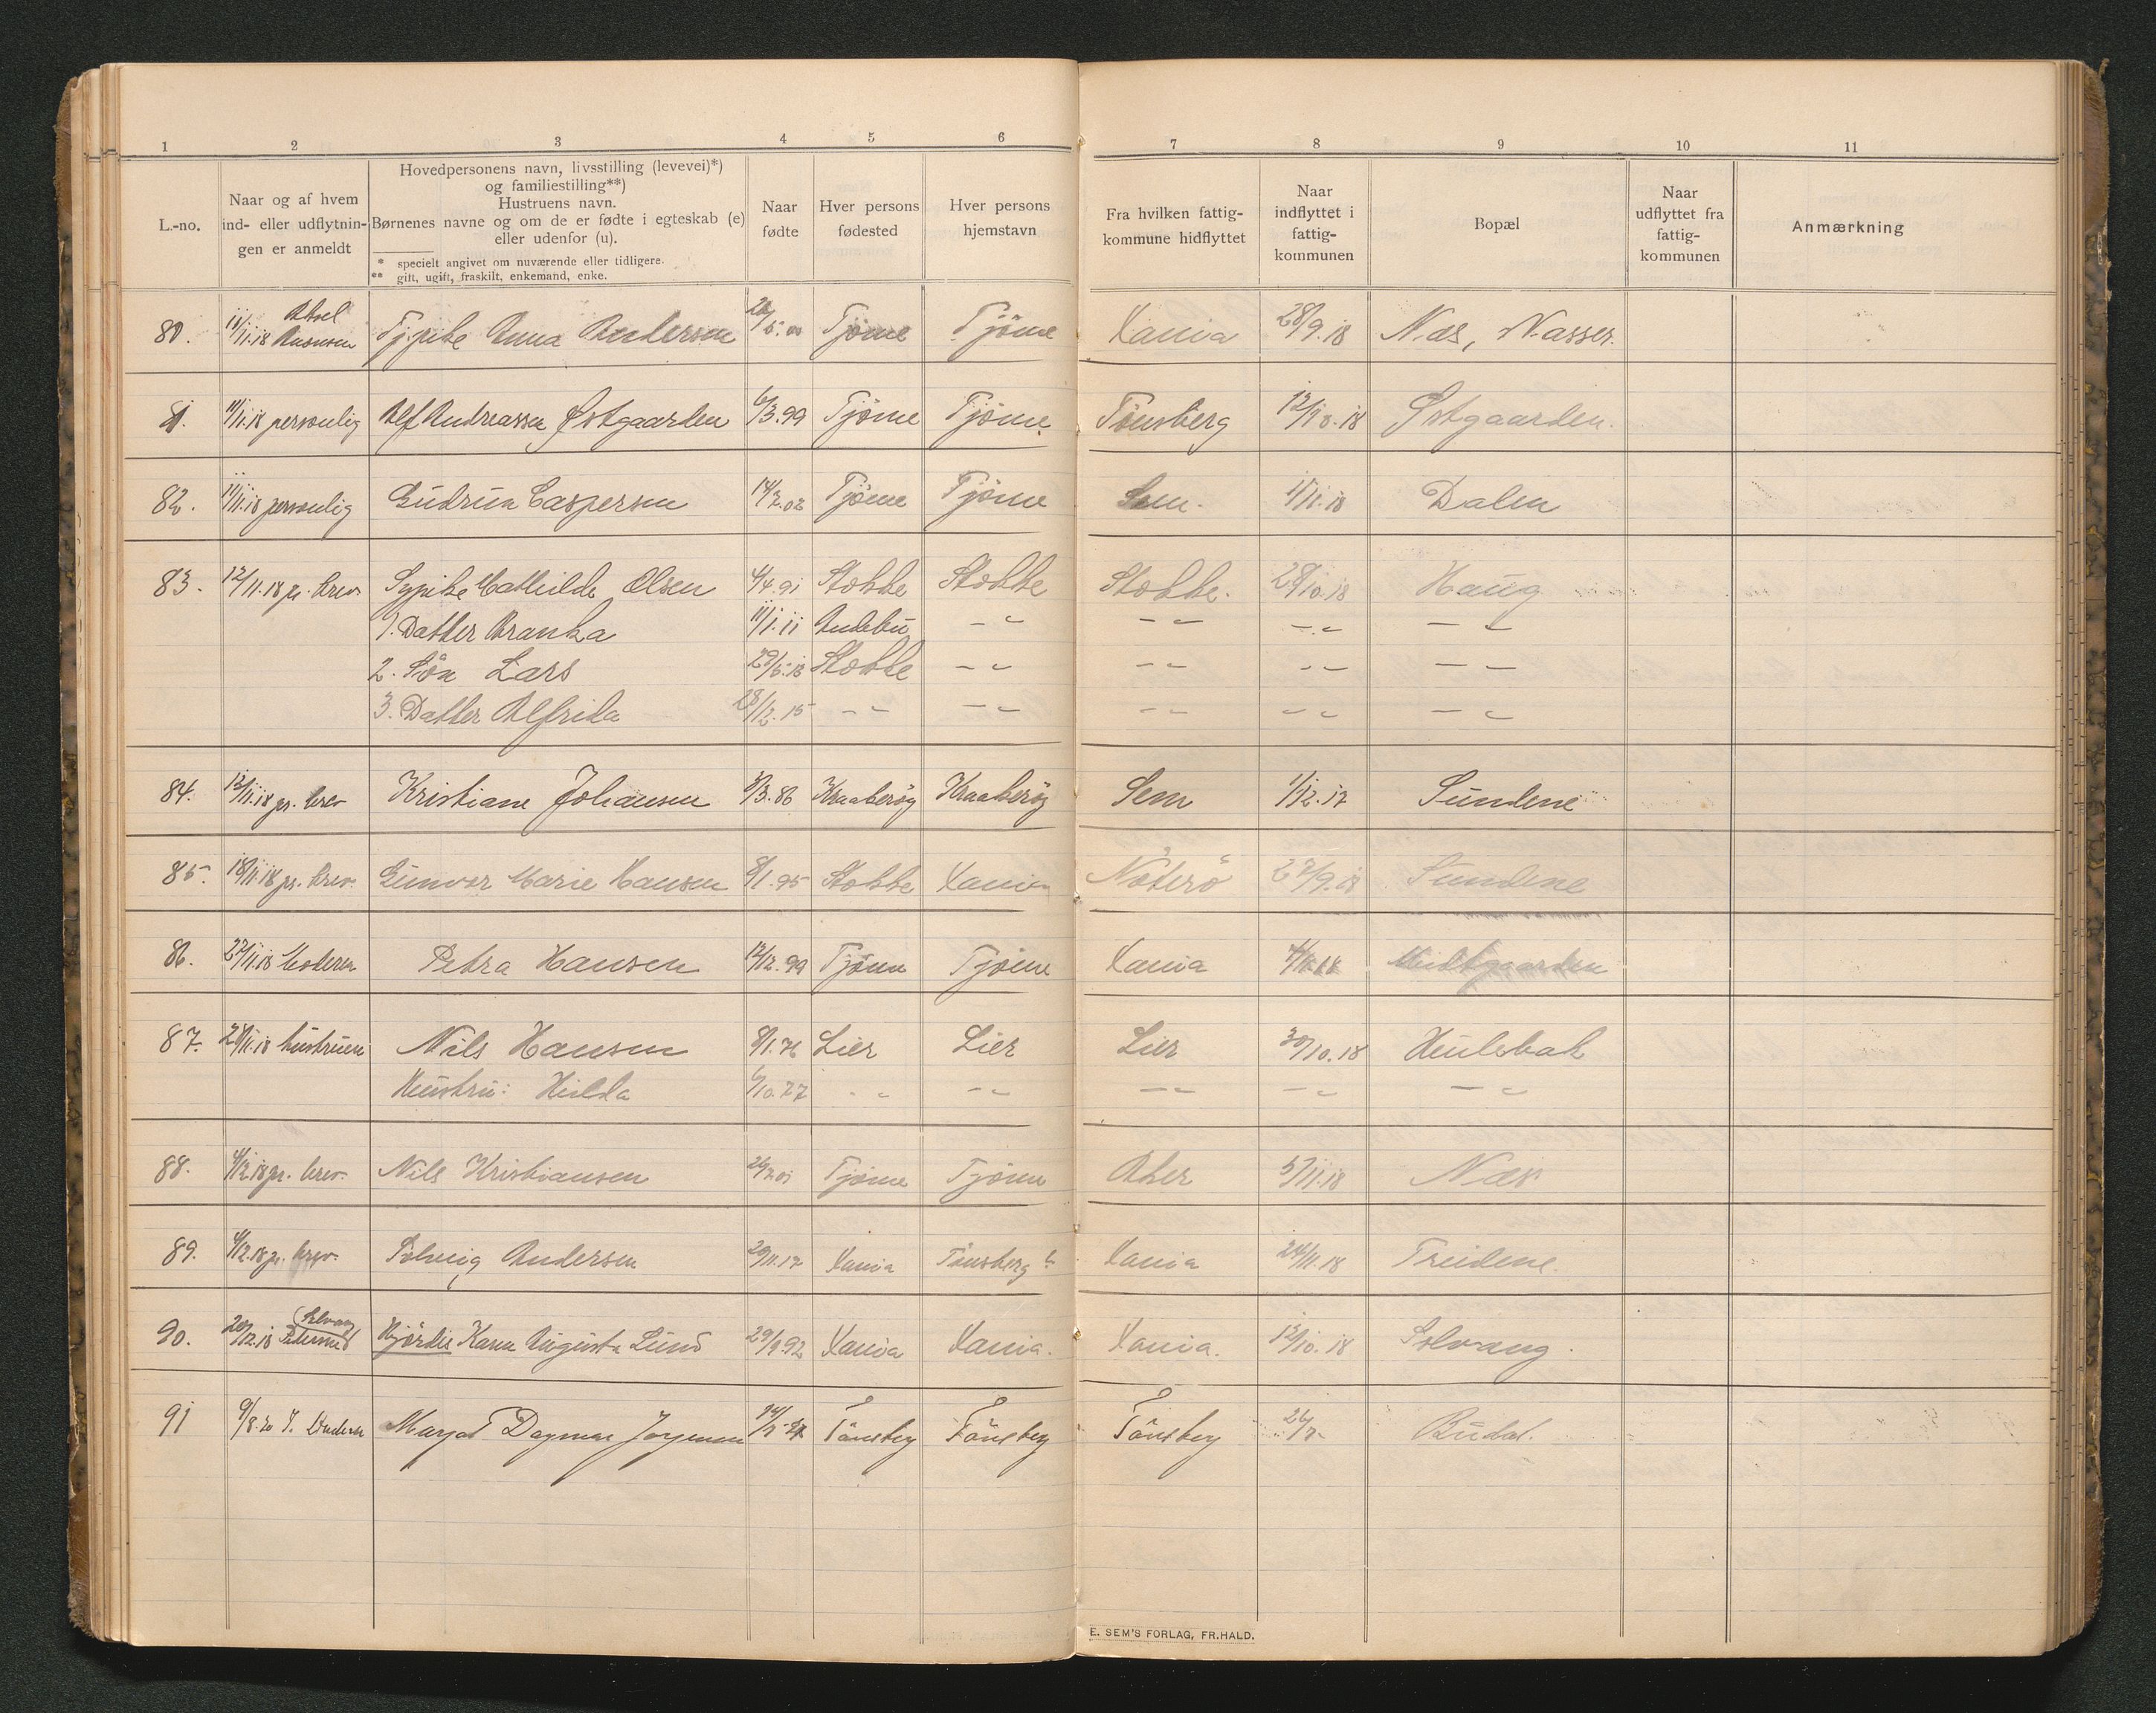 1 2 3 4 5 6 7 8 9 10 11
L.-no.
Naar og af hvem
ind- eller udflytnin-
gen er anmeldt
Hovedpersonens navn, livsstilling (levevei)*)
og familiestilling**)
Hustruens navn.
Børnenes navne og om de er fødte i egteskab (e)
eller udenfor (u).
* specielt angivet om nuværende eller tidligere.
** gift, ugift, fraskilt, enkemand, enke.
Naar
fødte
Hver persons
fødested
Hver persons
hjemstavn
Fra hvilken fattig-
kommune hidflyttet
Naar
indflyttet i
fattig-
kommunen
Bopæl
Naar
udflyttet fra
fattig-
kommunen
Anmærkning
80. 11/11.18 Anna Andersen Tjøme Tjøme Xania 28/9.18 Næs,
81. 11/11.18 personlig Alf Andreassen Østgaarden 6/3.99 Tjøme Tjøme Tønsberg 12/10.18 Østgaarden.
82. 11/11.18 personlig Gudrun Caspersen Tjøme Tjøme Sem. 11/11.18 Dalen
83. 12/11.18 pr. brev Mathilde Olsen 4/4.91 Stokke Stokke Stokke. 28/10.18 Haug
1. Datter Branka 11/1.11 Andebu - " - " - " - "
2. Søn Lars Stokke - " - " - " - "
3. Datter Alfrida 28/12.15 - " - " - " - " - "
84. 12/11.18 pr. brev Kristiane Johansen Kraaberög Kraaberög Sem 1/12.17 Sundene
85. 18/11.18 pr. brev. Gunvor Marie Hansen 8/1.95 Stokke Xania Nøterö 27/9.18 Sundene
86. 27/11.18 Moderen Petra Hansen 12/12.99 Tjøme Tjøme Xania Midtgaarden
87. 28/11.18 hustruen Nils Hansen 8/1.76 Lier Lier Lier 30/10.18 Hulebak
Hustru: Hilda 6/10.77 - " - " - " - " - "
88. 4/12.18 pr. brev. Nils Kristiansen Tjøme Tjøme Aker 5/11.18 Næs
89. 4/12.18 pr. brev. Solveig Andersen 29/11.17 Xania Tønsberg Xania 24/11.18
90. 20/12.18 Hjördis Karen Augusta Lund Xania Xania. Xania. 12/10.18 Solvang.
91 9/8.20 Margot Dagmar Jørgensen Tönsberg Tönsberg Tönsberg
E. SEM'S FORLAG, FR.HALD.